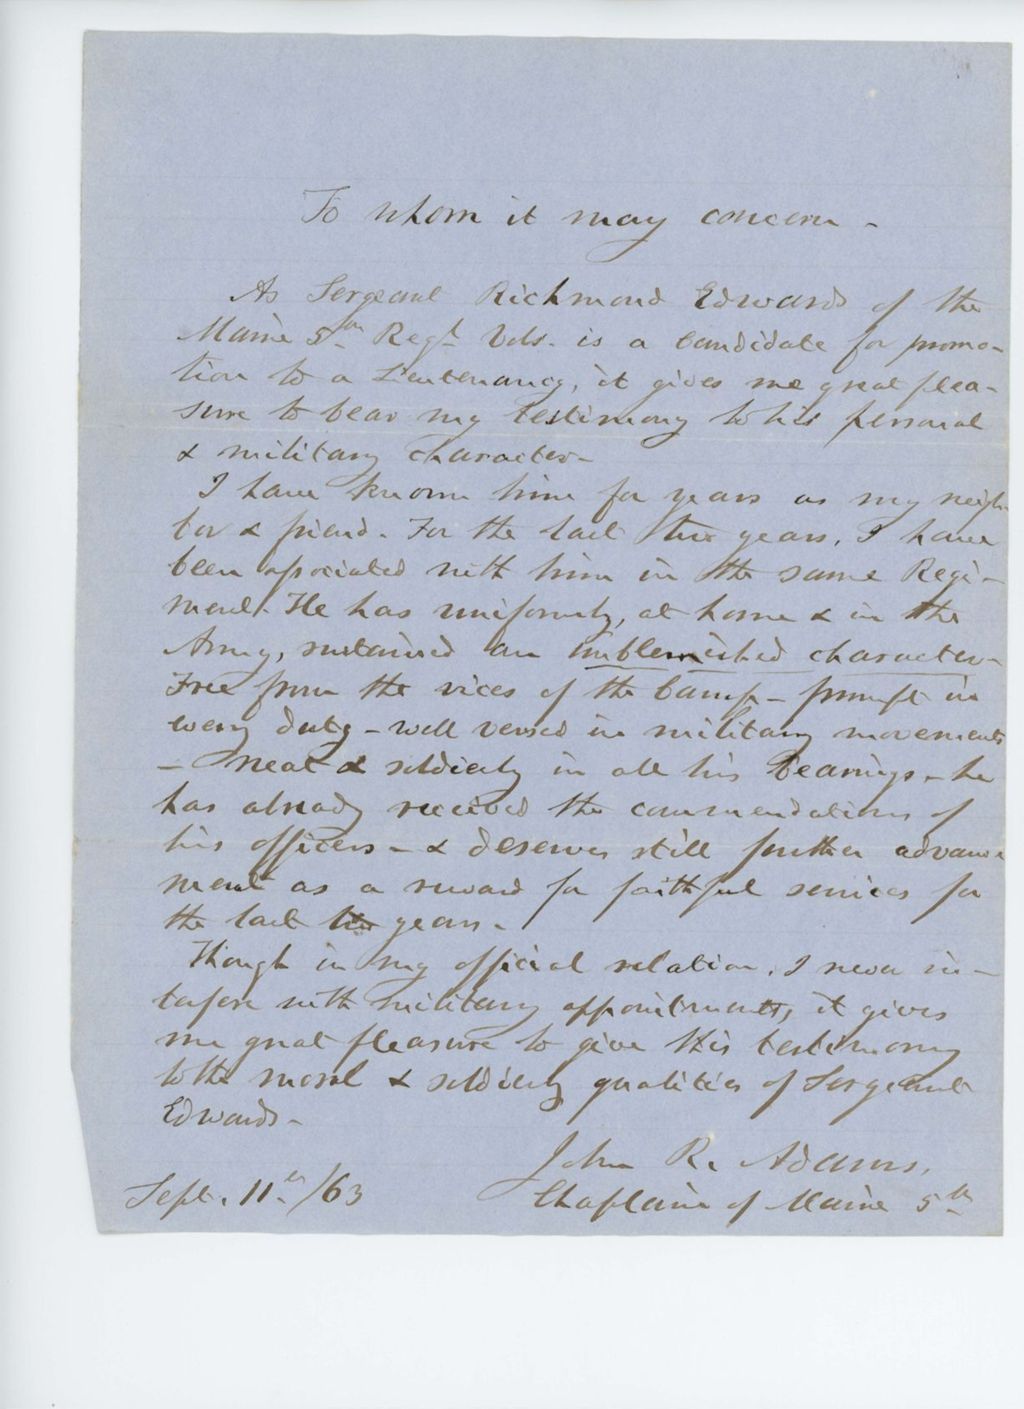 To whom it may concern -
As Sergeant Richmond Edwards of the
Maine 5th Regt Vols. is a candidate for promo-
tion to a Lieutenancy, it gives me great plea-
sure to bear my testimony to his personal
& military character -
I have known him for years as my neigh-
bor & friend. For the last two years, I have
been associated with him in the same Regi-
ment. He has uniformly, at home & in the
Army, sustained an unblemished character -
Free from the vices of the Camp - prompt in
every duty - well versed in military movements
- neat & soldierly in all his bearings - he
has already received the commendations of
his officers - & deserves still further advance
ment as a reward for faithful services for
the last two years -
Though in my official relation, I never in-
terfere with military appointments, it gives
me great pleasure to give this testimony
to the moral & soldierly qualities of Sergeant
Edwards -
John R. Adams,
Sept. 11th /63
Chaplain of Maine 5th